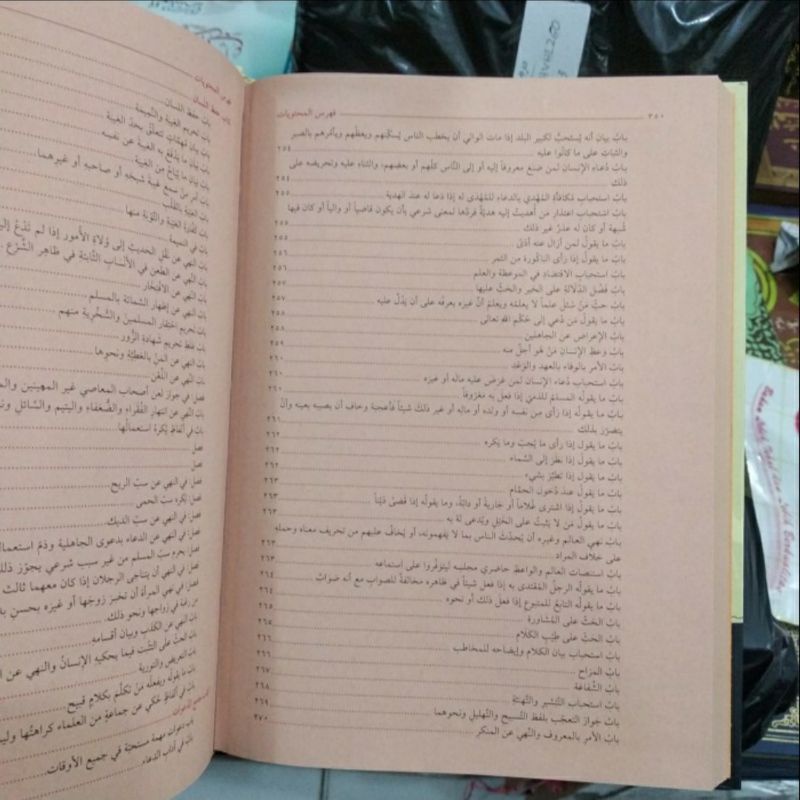 ٣٥٠ فهرس المحتويات
بابُ بيان أنه يُستحبُّ لكبير البلد إذا مات الوالي أن يخطب الناس ليسكّنهم ويعظهم ويأمرهم بالصبر
والثبات على ما كانوا عليه ٢٥٤
بابُ دُعاءِ الإنسان لمن صَنع معروفاً إليه أو إلى النَّاس كلِّهم أو بعضِهم، والثناء عليه وتحريضه على
ذلك
بابُ استحباب مُكافأة المُهْدي بالدعاء للمُهْدَى له إذا دعا له عندَ الهدية ٢٥٥
بابُ استحباب اعتذار من أُهديتْ إليه هديَّةٌ فردَّها لمعنى شرعي بأن يكون قاضياً أو والياً أو كان فيها
شُبهة أو كان له عذرٌ غير ذلك ٢٥٥
بابُ ما يقولُ لمن أزال عنه أذىً
بابُ ما يقولُ إذا رأى الباكورة من الثمر
بابُ استحبابِ الاقتصاد في الموعظة والعلم ٢٥٦
بابُ فَضْل الدِّلالة على الخير والحثِّ عليها
بابُ حثّ مَنْ سُئل علماً لا يعلمُه ويعلمُ أنَّ غيرَه يعرفُه على أن يَدُلَّ عليه ٢٥٧
بابُ ما يقولُ مَن دُعي إلى حُكْمِ الله تعالى ٢٥٨
بابُ الإعراض عن الجاهلين ٢٥٨
بابُ وعظِ الإنسانِ مَنْ هُوَ أجلُّ منه ٢٥٩
بابُ الأمر بالوفاء بالعهد والوَعْد ٢٦٠
بابُ استحباب دُعاء الإنسان لمن عَرَضَ عليه ماله أو غيرَه ٢٦٠
بابُ ما يقولُه المسلمُ للذميّ إذا فعل به مَعْرُوفاً
بابُ ما يقولُه إذا رأى مِن نفسِه أو ولده أو ماله أو غير ذلك شيئاً فأعجبَهُ وخاف أن يصيبه بعينِه وأنْ
يتضرَّر بذلك ٢٦١
بابُ ما يقول إذا رأى ما يُحِبّ وما يكره
بابُ ما يقول إذا نظرَ إلى السَّماء
بابُ ما يقول إذا تطيَّرَ بشيء ٢٦٢
بابُ ما يقول عندَ دُخول الحمَّام ٢٦٣
بابُ ما يقولُ إذا اشترى غُلاماً أو جَاريةً أو دابَّةً، وما يقولُه إذا قَضى دَيْناً ٢٦٣
بابُ ما يقول مَن لا يَثبتُ على الخَيْل ويُدعى له به ٢٦٣
بابُ نهي العالم وغيره أن يُحدِّث الناسَ بما لا يفهمونه، أو يُخافُ عليهم من تحريف معناه وحمله
على خلاف المراد ٢٦٣
بابُ استنصات العالم والواعظ حاضري مجلسه ليتوفَّروا على استماعه
بابُ ما يقولُه الرجلُ المُقتدى به إذا فعل شيئاً في ظاهره مخالفةٌ للصواب مع أنه صَوَابٌ ٢٦٤
بابُ ما يقولُه التابعُ للمتبوعِ إذا فعل ذلك أو نحوه
بابُ الحثّ على المُشَاورة
بابُ الحثّ على طِيْبِ الكلام
بابُ استحباب بيان الكلام وإيضاحه للمخاطب ٢٦٦
بابُ المزاح
بابُ الشَّفاعة ٢٦٧
بابُ استحباب التَّبْشير والتَّهنئة ٢٦٨
بابُ جَواز التعجّب بلفظ التَّسبيح والتَّهليل ونحوهما ٢٦٩
بابُ الأمر بالمعروف والنَّهي عن المنكر ٢٧٠
فهرس المحتويات
بابُ حفظ اللسان
بابُ تحريم الغِيبة والنَّميمة
بابُ بيان مُهِمَّاتٍ تتعلَّق بحدّ الغِيبة
بابُ بيان ما يَدفعُ به الغيبةَ عن نفسِه
بابُ بيان ما يُباح مِنَ الغيبة
بابُ أمرِ مَنْ سمع غيبةَ شيخِه أو صاحبِه أو غيرهما
بابُ الغِيْبة بالقلب
بابُ كفَّارة الغيبة والتَّوبة منها
بابُ في النميمة
بابُ النهي عن نقل الحديث إلى وُلاةِ الأُمور إذا لم تَدْعُ
بابُ النهي عن الطعن في الأنساب الثَّابتة في ظاهر الشَّرْع
بابُ النهي عن الافتخار
بابُ النهي عن إظهار الشماتة بالمسلم
بابُ تحريم احتقار المسلمين والسُّخرية منهم
بابُ غلظ تحريم شهادة الزُّور
بابُ النهي عن المَنّ بالعطيَّة ونحوها
بابُ النهي عن اللَّعْن
فصل: في جواز لعن أصحاب المعاصي غير المعينين
بابُ النهي عن انتهار الفُقَراء والضُّعفاء واليتيم والسَّائل
بابُ في ألفاظ يُكره استعمالُها
فصل
فصل
فصل: في النهي عن سبّ الريح
فصل: يُكره سبّ الحمى
فصل: في النهي عن سبّ الديك
فصل: في النهي عن الدعاء بدعوى الجاهلية وذمّ
فصل: يحرم سبّ المسلم من غير سبب شرعي يجوّز
فصل: في النهي أن يتناجى الرجلان إذا كان معهما ثالث
فصل: في نهي المرأة أن تخبر زوجَها أو غيرَه بحسن
من رغبة في زواجها ونحو ذلك
بابُ النهي عن الكذب وبيان أقسامه
بابُ الحثّ على التثبّت فيما يحكيه الإنسانُ والنهي عن
بابُ التعريض والتورية
بابُ ما يقولُه ويفعلُه مَنْ تكلَّم بكلامٍ قبيح
بابُ في ألفاظ حُكي عن جماعةٍ من العلماء كراهتُها
بابُ دعوات مهمة مستحبّة في جميع الأوقات
بابُ في آداب الدعاء